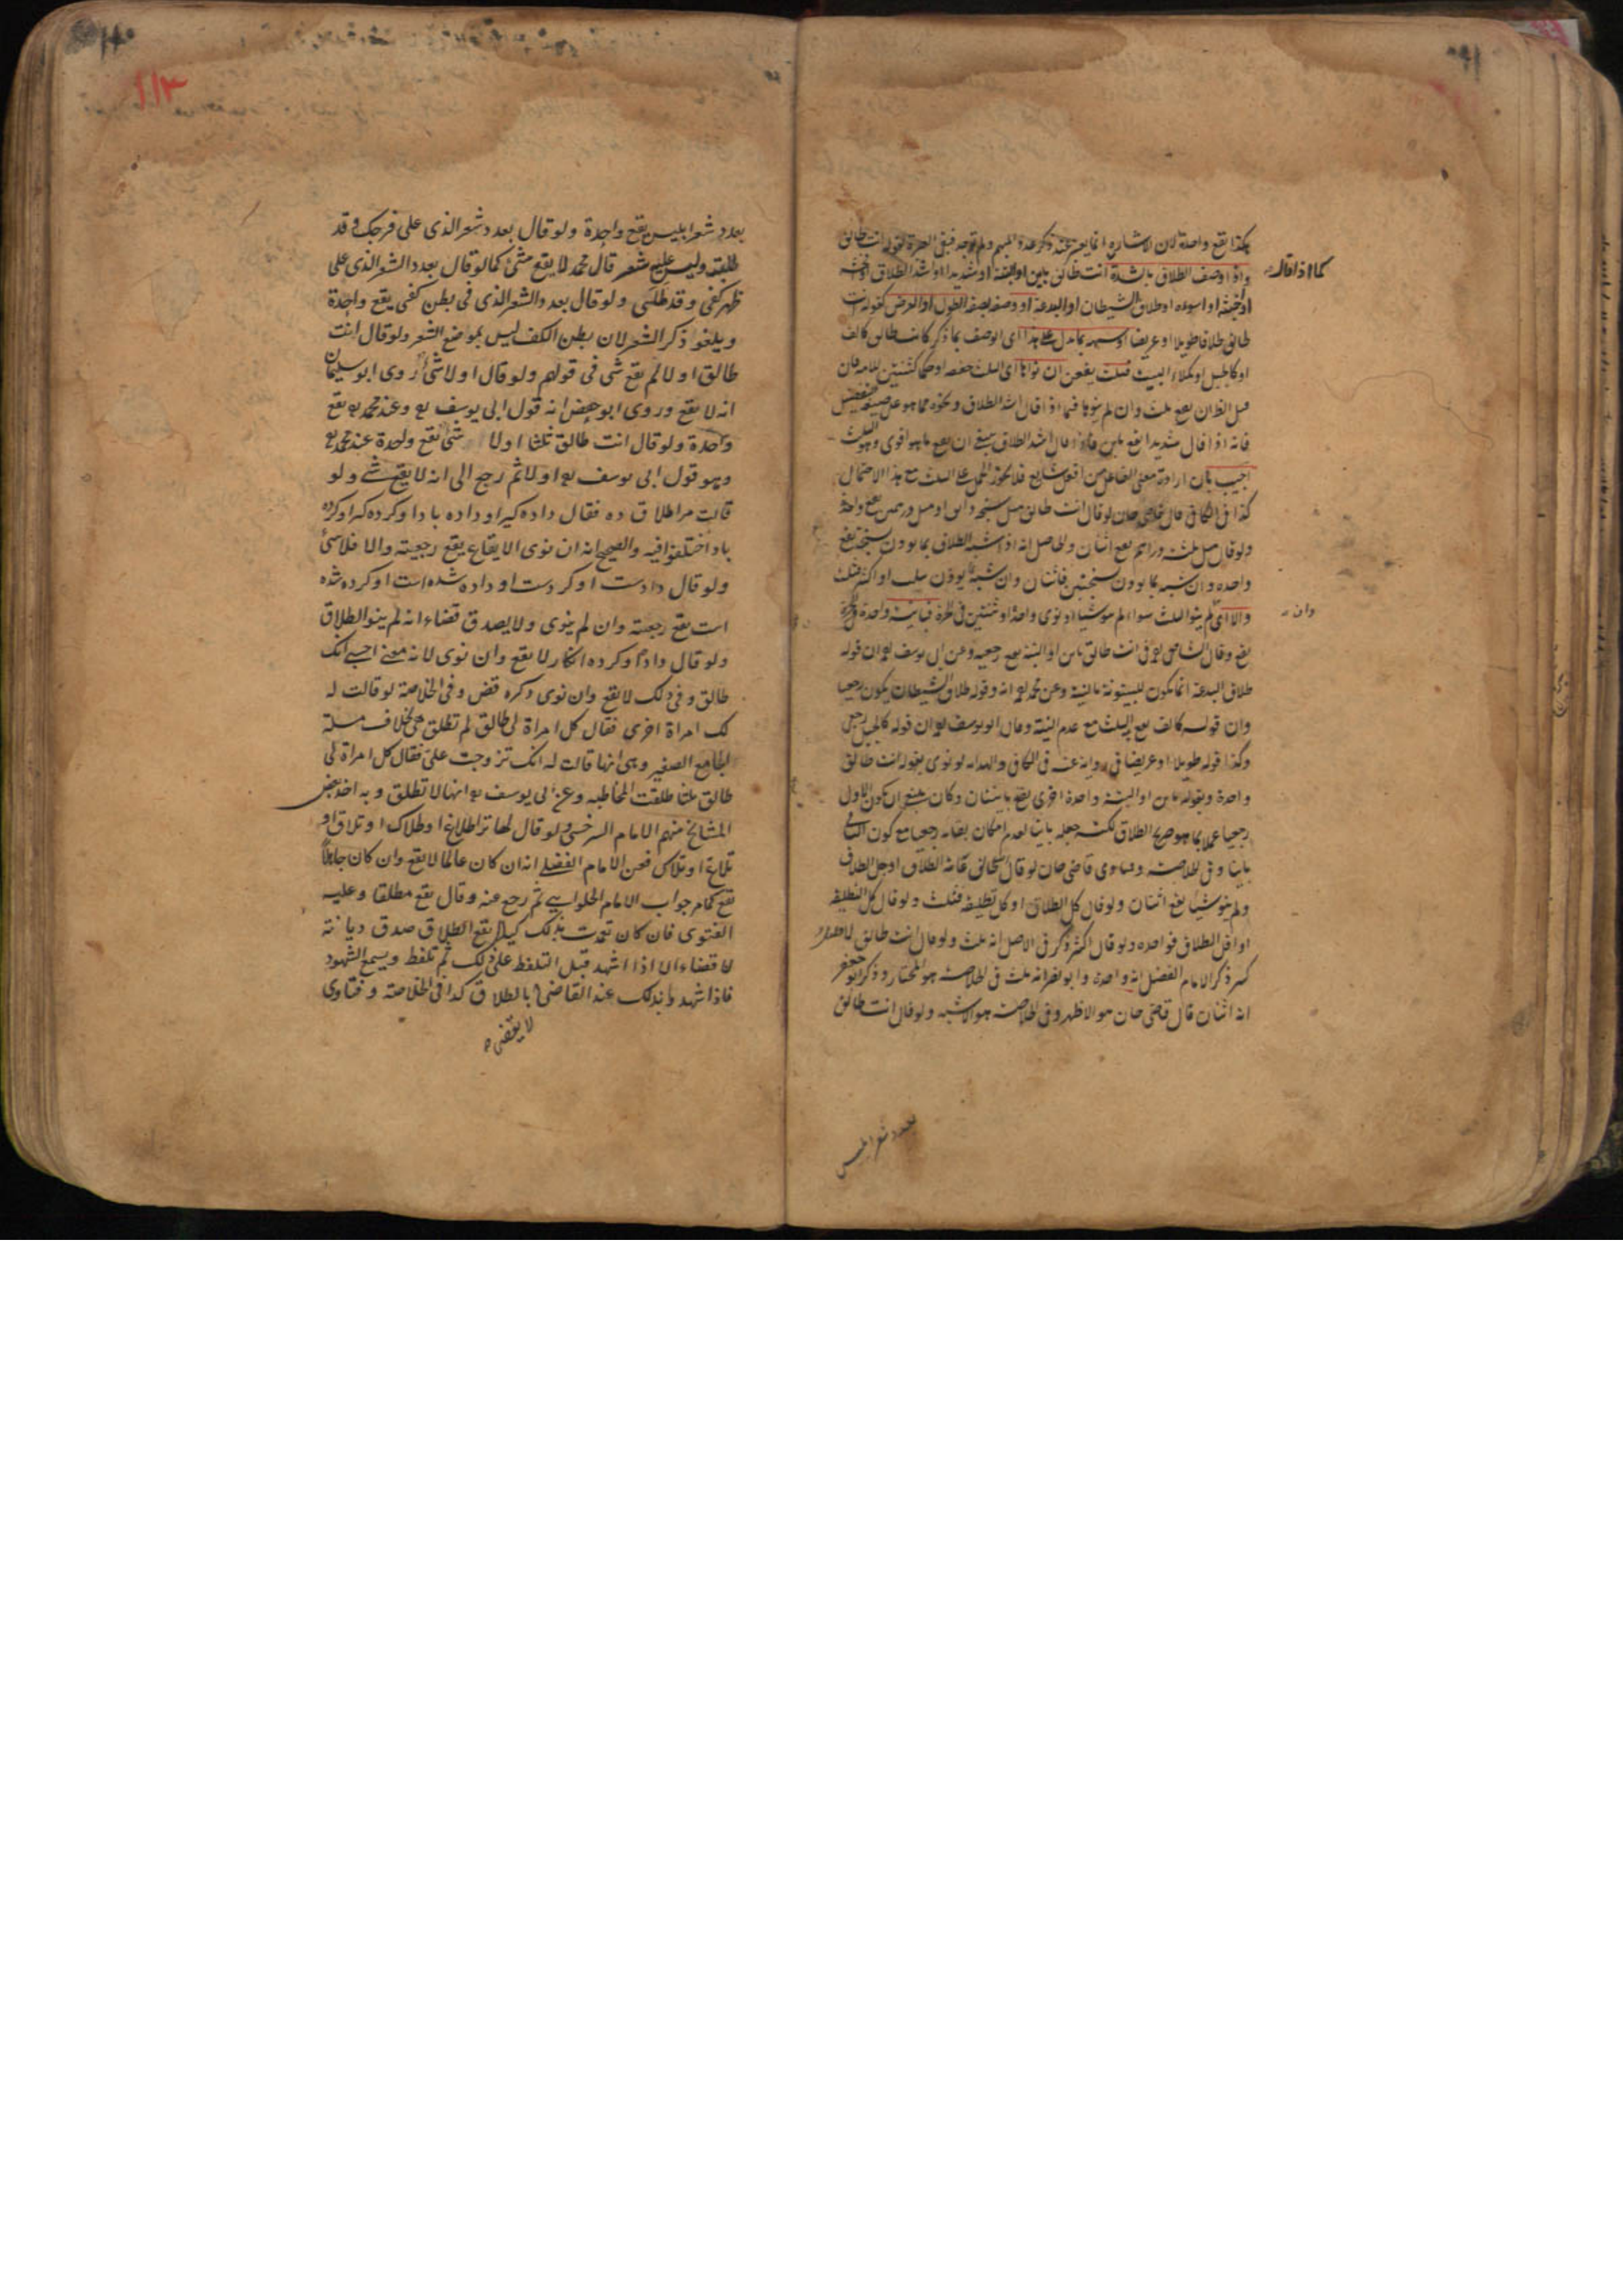 هكذا يقع واحدة لان الاشارة انما يعتبر عند ذكر عدد المبهم ولم توجد فبقى العبرة لقوله انت طالق
كما اذا قال
واذا وصف الطلاق بالشدة انت طالق باين او البتة او شديدا او اشد الطلاق او افحشه
او اخبثه او اسوءه او طلاق الشيطان او البدعة او وصفه بصفة الطول او العرض كقوله انت
طالق طلاقا طويلا او عريضا او شبهه بما يدل على هذا اى الوصف بما ذكر كانت طالق كالف
او كالجبل او بملاء البيت فثلث يقعن ان نواها اى الثلث
قيل الظ ان يقع ثلث وان لم ينوها فيما اذا قال اشد الطلاق ونحوه مما هو على صيغة التفضيل
فانه اذا قال شديدا يقع باين فاذا قال اشد الطلاق ينبغى ان يقع ما هو اقوى وهو الثلث
اجيب بان ارادة معنى الفاعل من افعل شايع فلا يجوز الحمل على الثلث مع هذا الاحتمال
كذا فى الكافى قال قاضى خان لو قال انت طالق مثل
ولو قال مثل ثلثة دراهم يقع اثنان والحاصل انه اذا شبه الطلاق بما يوزن بسنجة يقع
واحدة وان شبه بما يوزن بسنجتين فاثنان وان شبه بما يوزن بثلث او اكثر فثلث
وان
والا اى لم ينو الثلث سواء لم ينو شيئا او نوى واحدة او ثنتين فى الحرة فباينة واحدة
يقع وقال الشافعى فى انت طالق باين او البتة يقع رجعية وعن ابى يوسف ان قوله
طلاق البدعة انما يكون للبينونة بالنية وعن محمد انه وقوله طلاق الشيطان يكون رجعيا
وان قوله كالف يقع الثلث مع عدم النية وقال ابو يوسف ان قوله كالجبل رجعى
وكذا قوله طويلا او عريضا فى رواية عنه فى الكافى والهداية لو نوى بقوله انت طالق
واحدة وبقوله باين او البتة واحدة اخرى يقع باينتان وكان ينبغى ان يكون الاول
رجعيا عملا بما هو صريح الطلاق لكنه جعله باينا لعدم امكان بقائه رجعيا مع كون الثانى
باينا وفى الخلاصة وفتاوى قاضى خان لو قال عامة الطلاق او جل الطلاق
ولم ينو شيئا يقع اثنتان ولو قال كل الطلاق او كل تطليقة فثلث ولو قال كل التطليقة
او اقل الطلاق فواحدة ولو قال اكثر ذكر فى الاصل انه ثلث ولو قال انت طالق
كثير ذكر الامام الفضلى انه واحدة و انه ثلث فى الخلاصة هو المختار وذكر ابو جعفر
انه اثنان قال قاضى خان هو الاظهر وفى الخلاصة هو الاشبه ولو قال انت طالق
بعدد شعر ابليس
بعدد شعر ابليس يقع واحدة ولو قال بعدد شعر الذى على فرجك وقد
طلقت وليس عليه شعر قال محمد لا يقع شئ كما لو قال بعدد الشعر الذى على
ظهر كفى وقد طلى ولو قال بعدد الشعر الذى فى بطن كفى يقع واحدة
ويلغو ذكر الشعر لان بطن الكف ليس بموضع الشعر ولو قال انت
طالق او لا لم يقع شى فى قولهم ولو قال او لا شئ روى ابو سليمان
انه لا يقع وروى ابو حفص انه قول ابى يوسف وعند محمد يقع
واحدة ولو قال انت طالق ثلثا او لا شئ يقع واحدة عند محمد
وهو قول ابى يوسف اولا ثم رجع الى انه لا يقع شئ ولو
قالت مرا طلاق ده فقال داده كير او داده باد او كرده كير او كرده
باد اختلفوا فيه والصحيح انه ان نوى الايقاع يقع رجعية والا فلا شئ
ولو قال دادست او كردست او داده شده است او كرده شده
است يقع رجعية وان لم ينوى ولا يصدق قضاء انه لم ينو الطلاق
ولو قال داده او كرده انكار لا يقع وان نوى لانه معنى احسبى انك
طالق وفى ذلك لا يقع وان نوى ذكره قض وفى الخلاصة لو قالت له
لك امراة اخرى فقال كل امراة لى طالق لم تطلق هى بخلاف مسئلة
الجامع الصغير وهى انها قالت له انك تزوجت على فقال كل امراة لى
طالق ثلثا طلقت المخاطبه وعن ابى يوسف انها لا تطلق وبه اخذ بعض
المشايخ منهم الامام السرخسى ولو قال لها ترا طلاغ او طلاك او تلاق او
تلاغ او تلاك فعن الامام الفضلى انه ان كان عالما لا يقع وان كان جاهلا
يقع كما مر جواب الامام الحلوانى ثم رجع عنه وقال يقع مطلقا وعليه
الفتوى فان كان تعمدت بذلك كيلا يقع الطلاق صدق ديانة
لا قضاء الا اذا اشهد قبل التلفظ على ذلك ثم تلفظ ويسمع الشهود
فاذا شهدوا بذلك عند القاضى بالطلاق كذا فى الخلاصة وفتاوى
لا يقضى